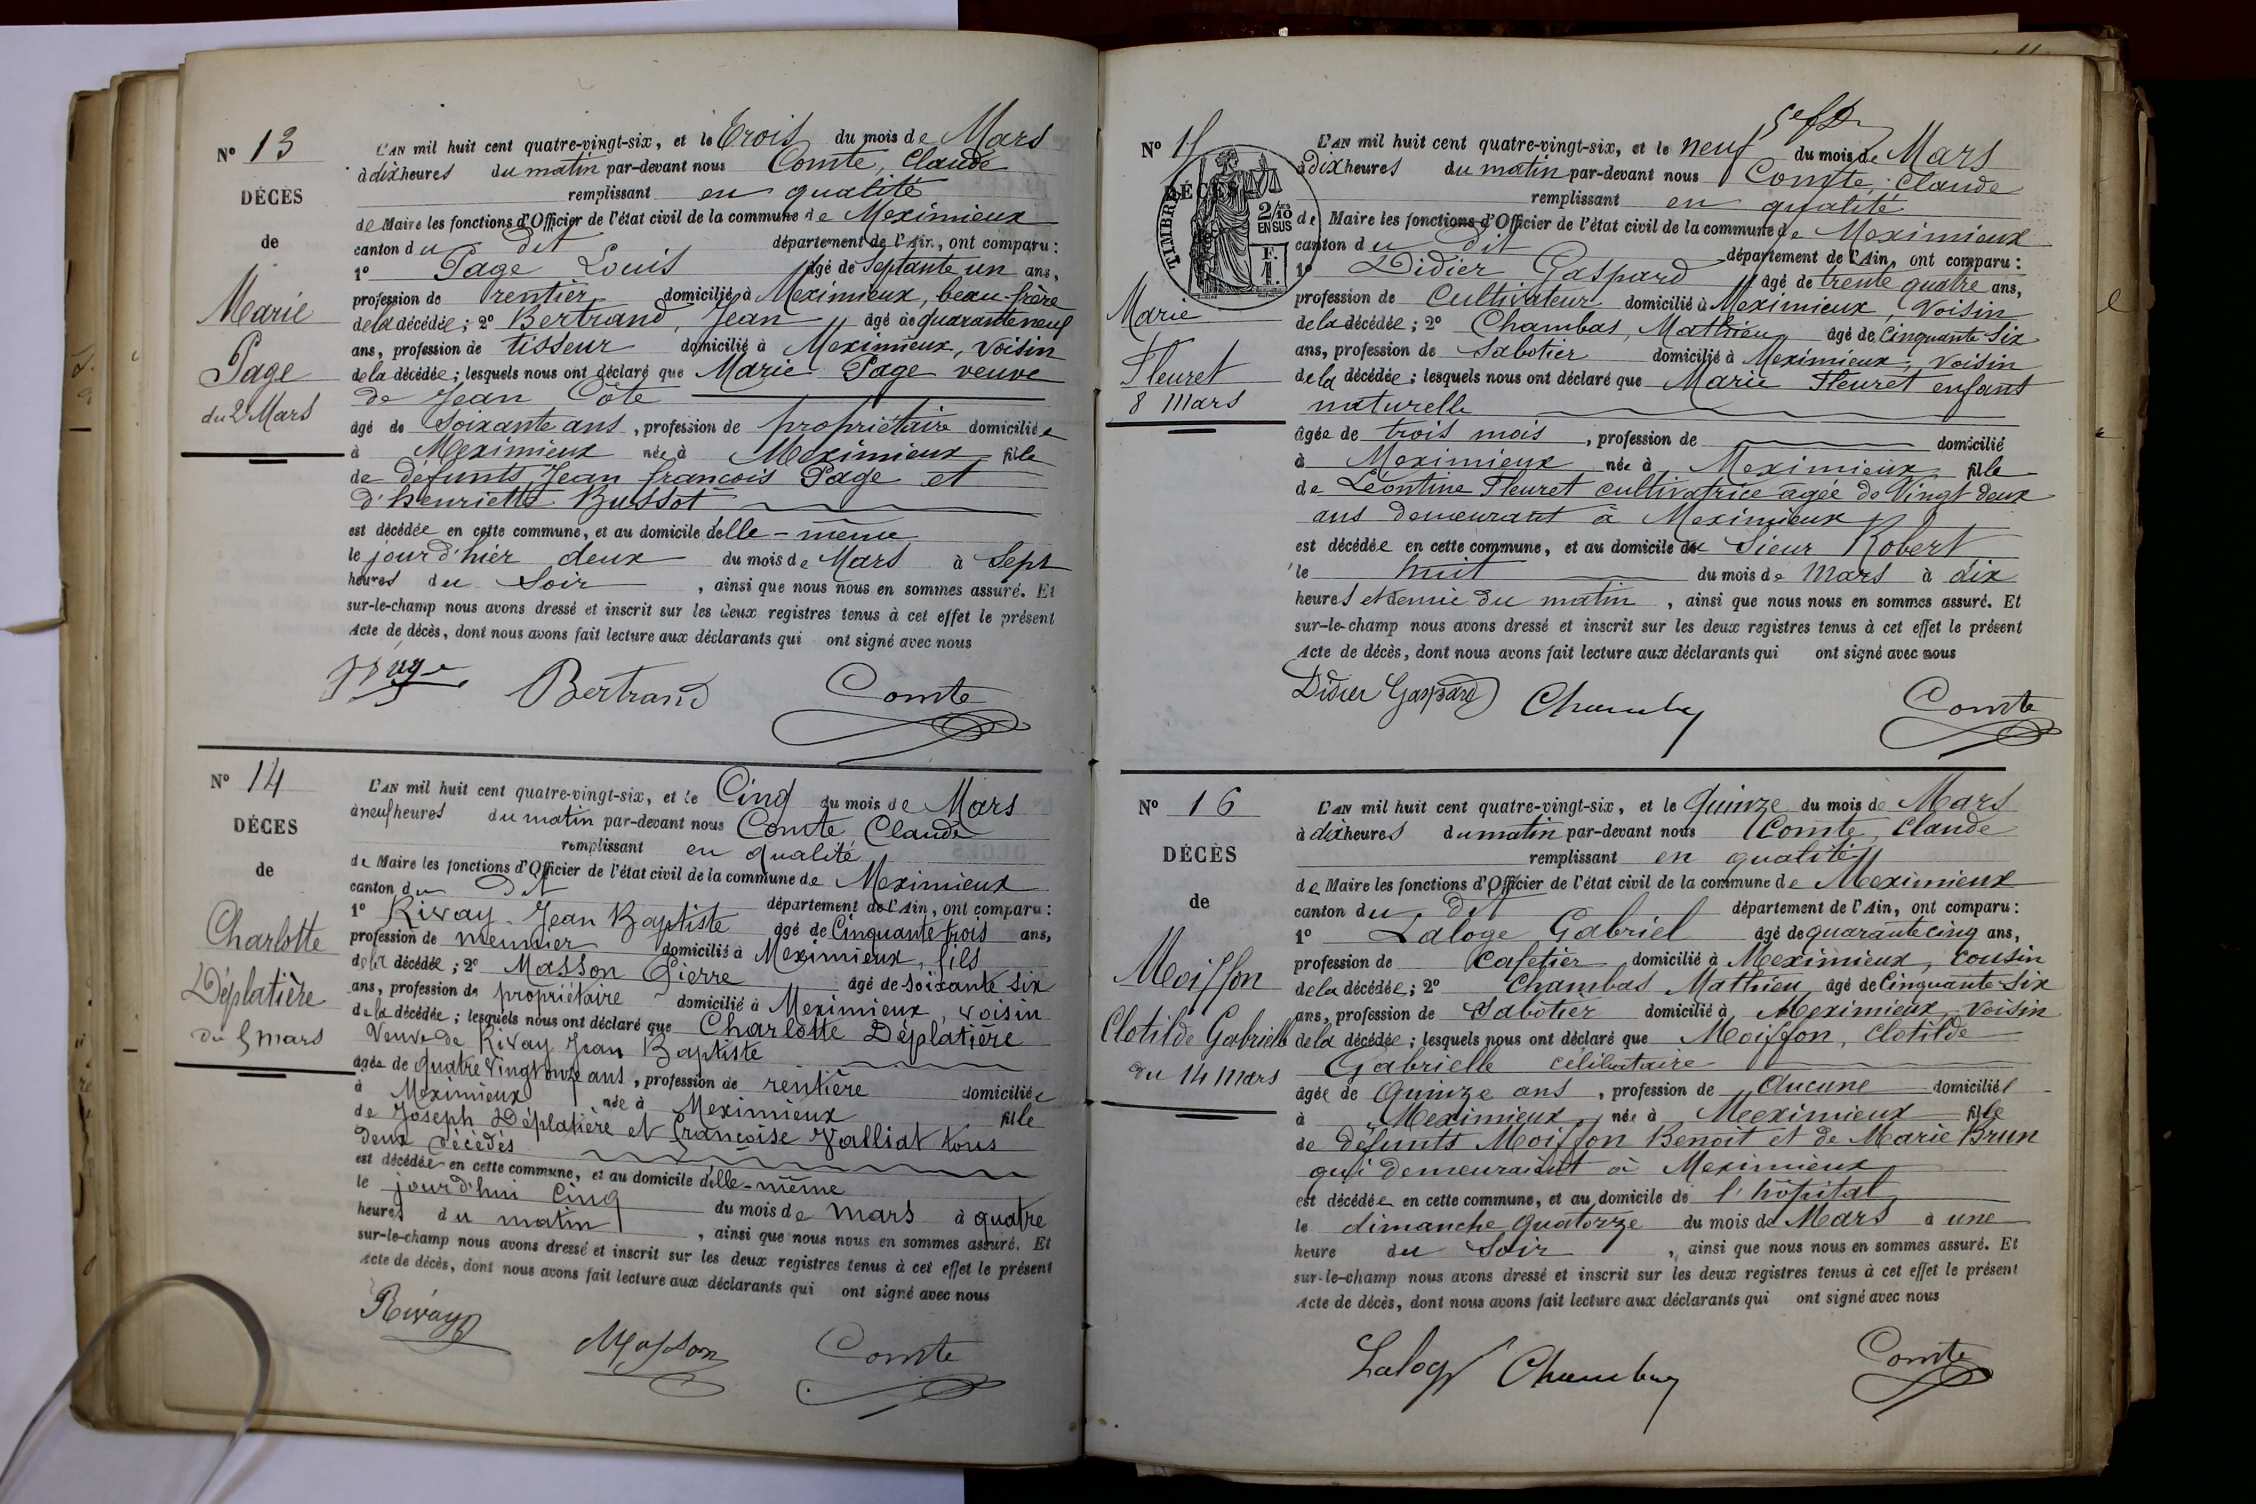 Nº 13
DÉCÈS
de
Marie
Page
du 2 Mars
L'AN mil huit cent quatre-vingt-six, et le Trois du mois de Mars
à dix heures du matin par-devant nous Comte, Claude
remplissant en qualité
de Maire les fonctions d'Officier de l'état civil de la commune de Meximieux
canton du dit département de l'Ain, ont comparu :
1º Page Louis âgé de Septante un ans,
profession de rentier domicilié à Meximieux, beau-frère
de la décédée ; 2º Bertrand, Jean âgé de quarante neuf
ans, profession de tisseur domicilié à Meximieux, voisin
de la décédée ; lesquels nous ont déclaré que Marie Page veuve
de Jean Côte
âgé de Soixante ans, profession de propriétaire domiciliée
à Meximieux née à Meximieux fille
de défunts Jean françois Page et
d'henriette Bussot
est décédée en cette commune, et au domicile d'elle-même
le jour d'hier deux du mois de Mars à Sept
heures du Soir, ainsi que nous nous en sommes assuré. Et
sur-le-champ nous avons dressé et inscrit sur les deux registres tenus à cet effet le présent
Acte de décès, dont nous avons fait lecture aux déclarants qui ont signé avec nous
Bertrand Comte
Nº 14
DÉCÈS
de
Charlotte
Déplatière
du 5 mars
L'AN mil huit cent quatre-vingt-six, et le Cinq du mois de Mars
à neuf heures du matin par-devant nous Comte Claude
remplissant en qualité
de Maire les fonctions d'Officier de l'état civil de la commune de Meximieux
canton du dit département de l'Ain, ont comparu :
1º Rivay Jean Baptiste âgé de Cinquante trois ans,
profession de meunier domicilié à Meximieux, fils
de la décédée ; 2º Masson Pierre âgé de soixante six
ans, profession de propriétaire domicilié à Meximieux, voisin
de la décédée ; lesquels nous ont déclaré que Charlotte Déplatière
Veuve de Rivay Jean Baptiste
âgée de quatre Vingt onze ans, profession de rentière domiciliée
à Meximieux née à Meximieux fille
de Joseph Déplatière et françoise Valliat tous
deux décédés
est décédée en cette commune, et au domicile d'elle-même
le jour d'hui Cinq du mois de mars à quatre
heures du matin, ainsi que nous nous en sommes assuré. Et
sur-le-champ nous avons dressé et inscrit sur les deux registres tenus à cet effet le présent
Acte de décès, dont nous avons fait lecture aux déclarants qui ont signé avec nous
Rivay Masson Comte
Nº 15
DÉCÈS
TIMBRE
2/10 EN SUS
F. 1.
Marie
Fleuret
8 mars
L'AN mil huit cent quatre-vingt-six, et le neuf du mois de Mars
à dix heures du matin par-devant nous Comte, Claude
remplissant en qualité
de Maire les fonctions d'Officier de l'état civil de la commune de Meximieux
canton du dit département de l'Ain, ont comparu :
1º Didier Gaspard âgé de trente quatre ans,
profession de Cultivateur domicilié à Meximieux, Voisin
de la décédée ; 2º Chambas, Mathieu âgé de Cinquante Six
ans, profession de Sabotier domicilié à Meximieux, voisin
de la décédée ; lesquels nous ont déclaré que Marie Fleuret enfant
naturelle
âgée de trois mois, profession de domicilié
à Meximieux née à Meximieux fille
de Léontine Fleuret cultivatrice agée de Vingt deux
ans demeurant à Meximieux
est décédée en cette commune, et au domicile du Sieur Robert
le huit du mois de Mars à dix
heures et demie du matin, ainsi que nous nous en sommes assuré. Et
sur-le-champ nous avons dressé et inscrit sur les deux registres tenus à cet effet le présent
Acte de décès, dont nous avons fait lecture aux déclarants qui ont signé avec nous
Didier Gaspard Comte
Nº 16
DÉCÈS
de
Moiffon
Clotilde Gabrielle
du 14 mars
L'AN mil huit cent quatre-vingt-six, et le Quinze du mois de Mars
à dix heures du matin par-devant nous Comte, Claude
remplissant en qualité
de Maire les fonctions d'Officier de l'état civil de la commune de Meximieux
canton du dit département de l'Ain, ont comparu :
1º Laloge Gabriel âgé de quarante cinq ans,
profession de Cafetier domicilié à Meximieux, cousin
de la décédée ; 2º Chambas Mathieu âgé de Cinquante Six
ans, profession de Sabotier domicilié à Meximieux Voisin
de la décédée ; lesquels nous ont déclaré que Moiffon, Clotilde
Gabrielle célibataire
âgée de Quinze ans, profession de Aucune domiciliée
à Meximieux, née à Meximieux fille
de défunts Moiffon Benoit et de Marie Brun
qui demeuraient à Meximieux
est décédée en cette commune, et au domicile de l'hôpital
le dimanche quatorze du mois de Mars à une
heure du Soir, ainsi que nous nous en sommes assuré. Et
sur-le-champ nous avons dressé et inscrit sur les deux registres tenus à cet effet le présent
Acte de décès, dont nous avons fait lecture aux déclarants qui ont signé avec nous
Comte